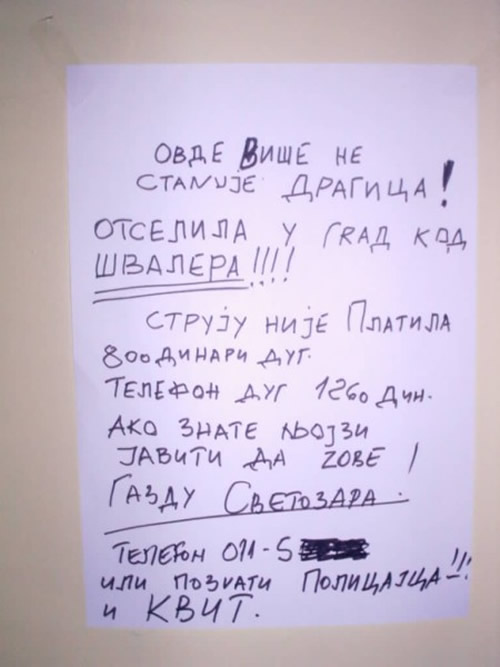 ОВДЕ ВИШЕ НЕ
СТАNUЈЕ ДРАГИЦА!
ОТСЕЛИЛА У ГRАД КОД
ШВАЛЕРА!!!!
СТРУЈУ НИЈЕ ПЛАТИЛА
800 ДИНАРИ ДУГ.
ТЕЛЕФОН ДУГ 1260 ДИН.
АКО ЗНАТЕ ЊОЈЗИ
ЈАВИТИ ДА ZОВЕ !
ГАЗДУ СВЕТОЗАРА.
ТЕЛЕFОН 011-5
ИЛИ ПОЗVАТИ ПОЛИЦАЈЦА!!!
И КВИТ.